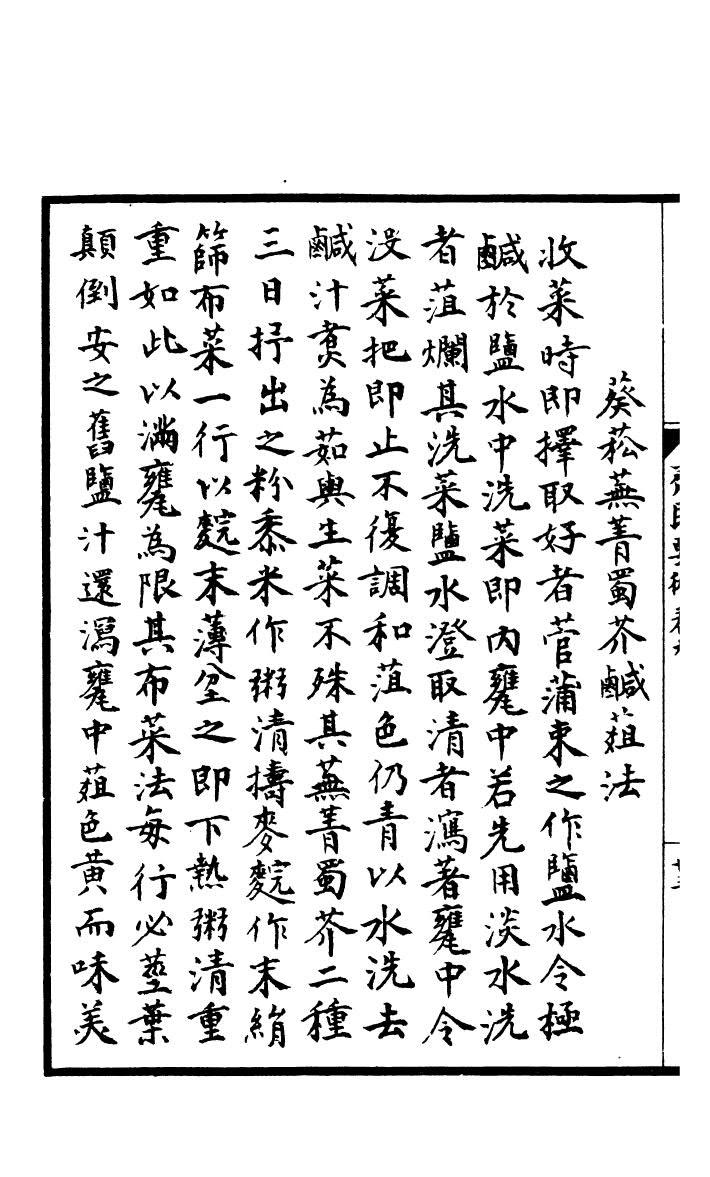 葵菘蕪菁蜀芥鹹葅法
收菜時即擇取好者菅蒲束之作鹽水令極
鹹於鹽水中洗菜即内甕中若先用淡水洗
者菹爛其洗菜鹽水澄取清者瀉著甕中令
没菜把即止不復調和菹色仍青以水洗去
鹹汁煑為茹與生菜不殊其蕪菁蜀芥二種
三日抒出之粉黍米作粥清擣麥䴷作末絹
篩布菜一行以䴷末薄坌之即下熱粥清重
重如此以滿甕為限其布菜法每行必莖葉
顛倒安之舊鹽汁還瀉甕中葅色黄而味美